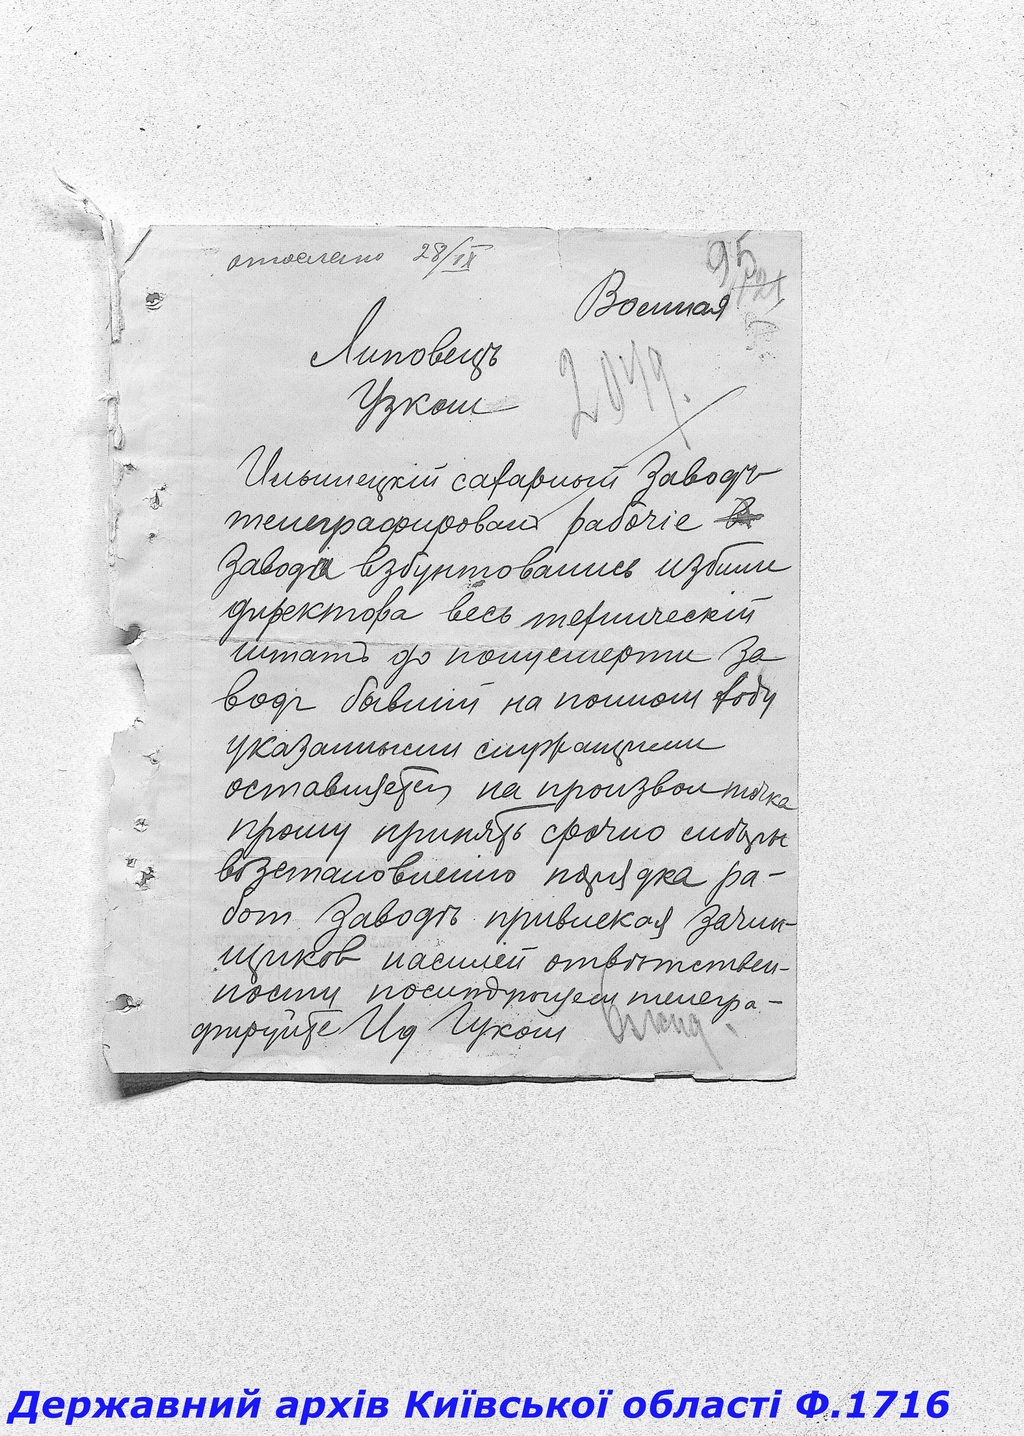 отослано 28/IX
95
Военная
Липовецъ
Узком
2049.
Ильинецкій сахарный Заводъ
телеграфировал рабочіе
Завода взбунтовались избили
директора весь техническій
штатъ до полусмерти За
водъ бывшій на полном ходу
указанными
оставляется на произвол
прошу принять срочно
возстановленію порядка ра-
бот Заводъ привлекая Зачин-
щиков насилій отвѣтствен-
ности послѣдующем телегра-
фируйте Ид Цуком
Державний архів Київської області Ф.1716